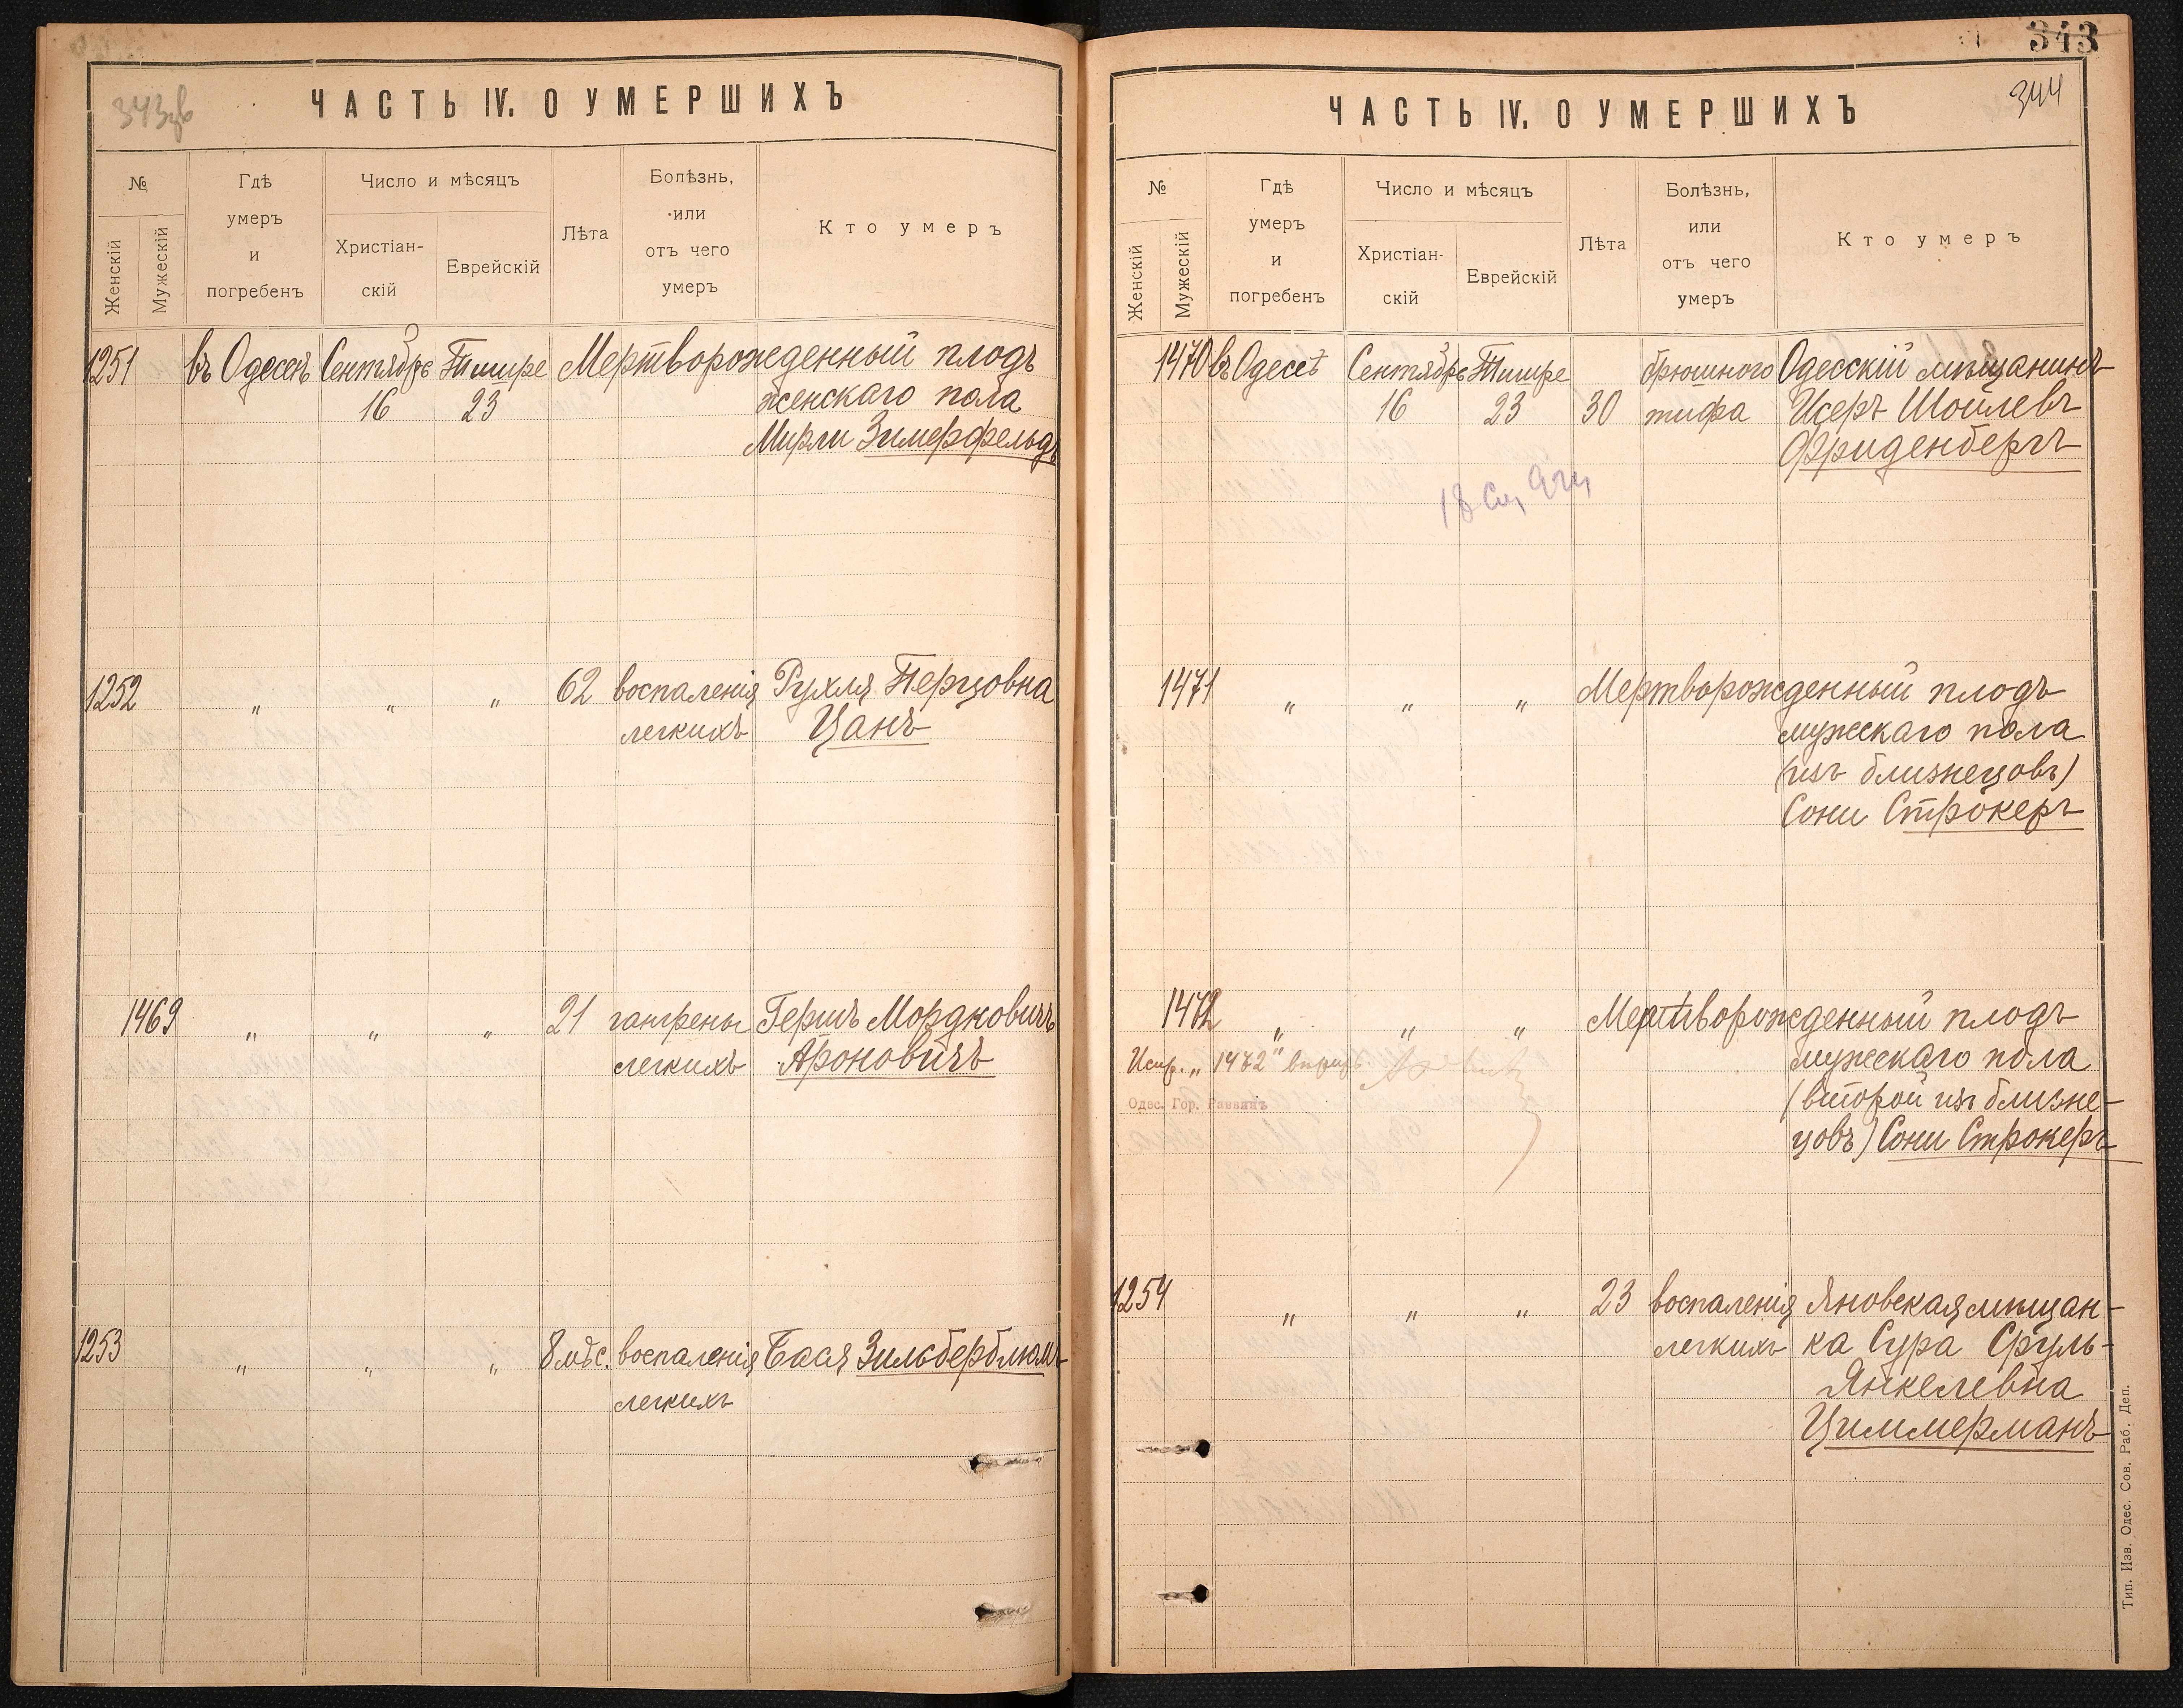 343зв
ЧАСТЬ IV. О УМЕРШИХЪ
№
Женскій
Мужескій
Гдѣ
умеръ
и
погребенъ
Число и мѣсяцъ
Христіан-
скій
Еврейскій
Лѣта
Болѣзнь,
или
отъ чего
умеръ
Кто умеръ
1251 въ Одессѣ Сентябрь Тишре Мертворожденный плодъ
16 23 женскаго пола
Мирли Зимерфельдъ
1252 „ „ „ 62 воспаленія Рухля Перцовна
легкихъ Цанъ
1469 „ „ „ 21 гангрены Гершъ Мордковичъ
легкихъ Ароновичъ
1253 „ „ „ 8 мѣс. воспаленія Бася Зильберблюмъ
легкихъ
343
344
ЧАСТЬ IV. О УМЕРШИХЪ
№
Женскій
Мужескій
Гдѣ
умеръ
и
погребенъ
Число и мѣсяцъ
Христіан-
скій
Еврейскій
Лѣта
Болѣзнь,
или
отъ чего
умеръ
Кто умеръ
1470 въ Одессѣ Сентябрь Тишре брюшного Одесскій мѣщанинъ
16 23 30 тифа Исеръ Шойлевъ
Фриденбергъ
18
1471 „ „ „ Мертворожденный плодъ
мужескаго пола
(изъ близнецовъ)
Сони Строкеръ
1472 „ „ „ Мертворожденный плодъ
Испр. „1472" мужескаго пола
Одес. Гор. Раввинъ (второй изъ близне-
цовъ) Сони Строкеръ
1254 „ „ „ 23 воспаленія Яновская мѣщан-
легкихъ ка Сура Сруль-
Янкелевна
Циммерманъ
Тип. Изв. Одес. Сов. Раб. Деп.